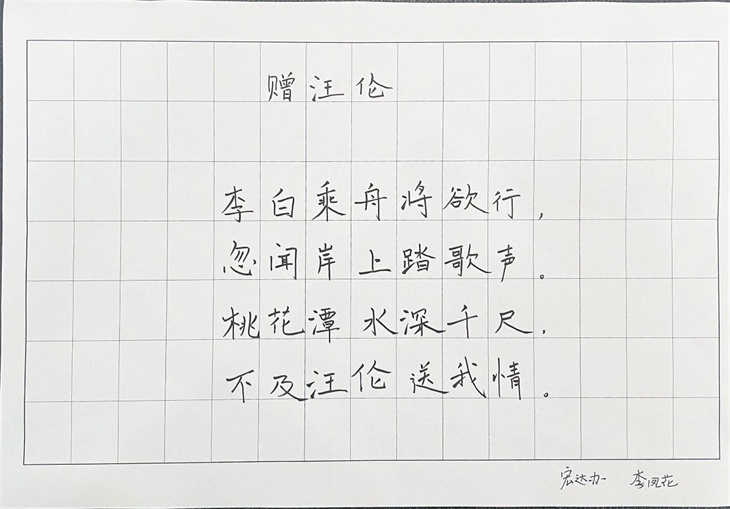 赠汪伦
李白乘舟将欲行,
忽闻岸上踏歌声。
桃花潭水深千尺,
不及汪伦送我情。
宏达办 李凤花